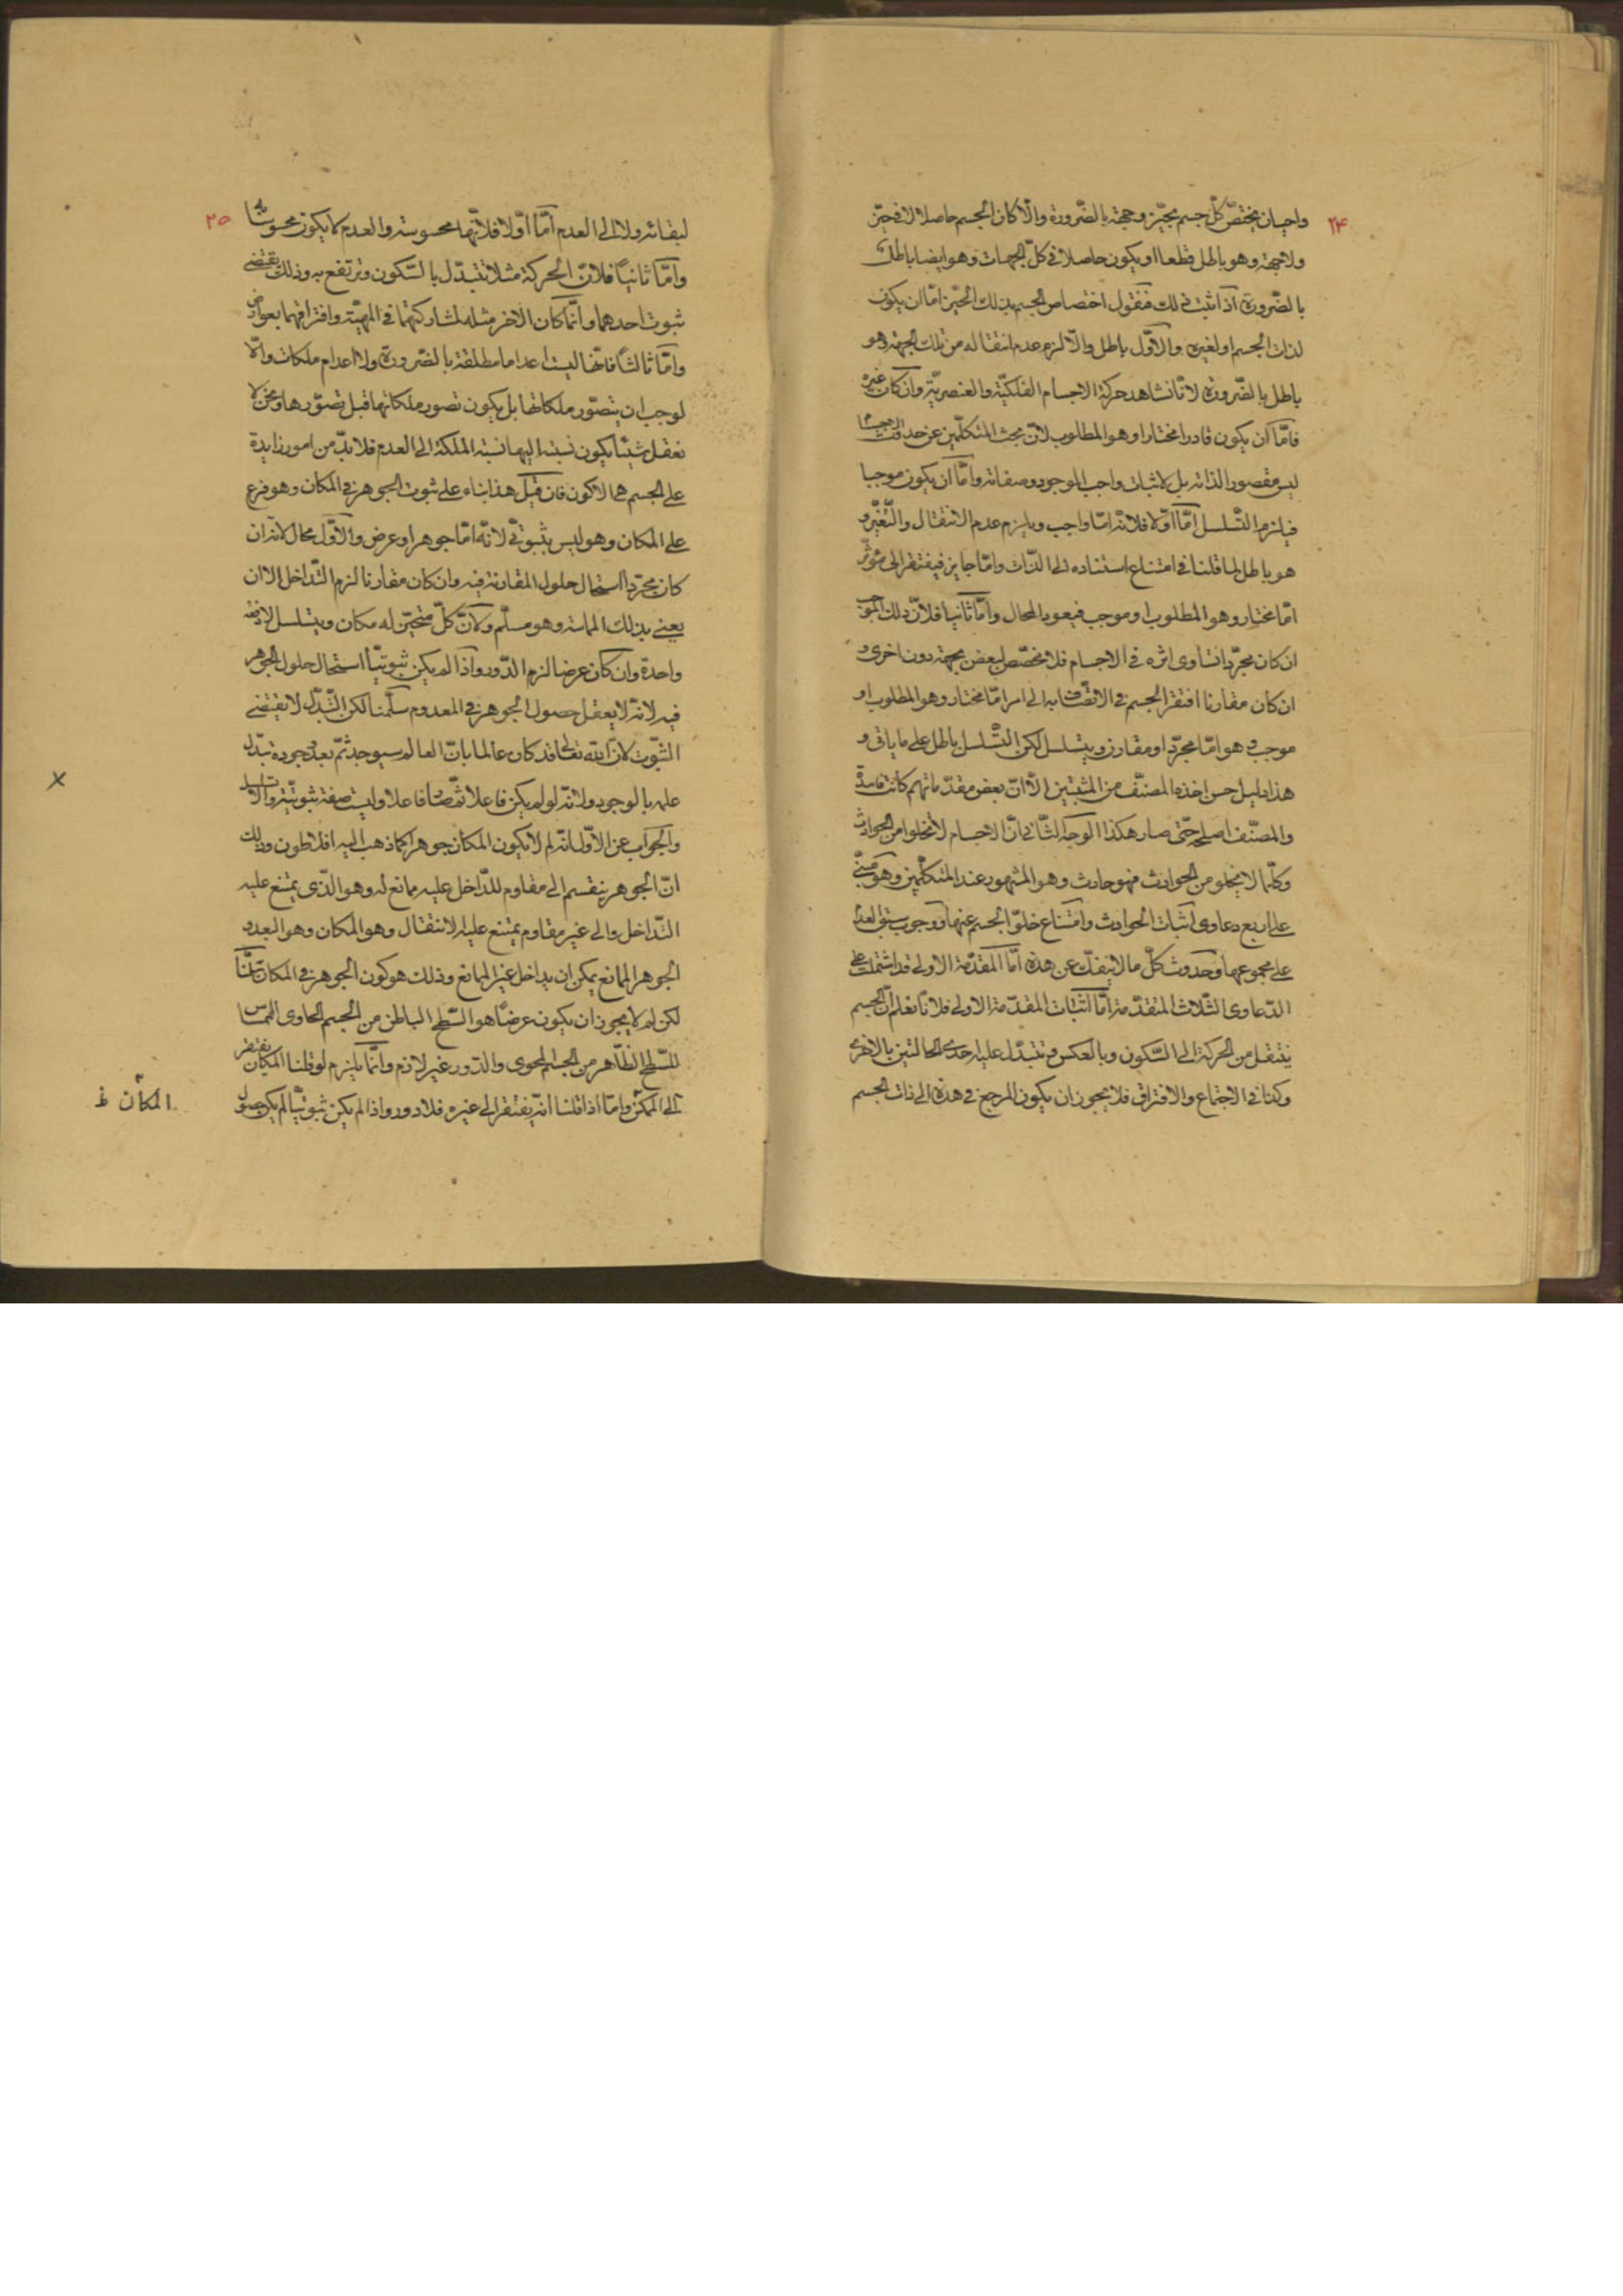 ۲۴
واحيان يختصّ كلّ جسم بحيّز وجهة بالضّرورة والّا كان الجسم حاصلا لا في حيّز
ولا جهة وهو باطل قطعا او يكون حاصلا في كلّ الجهات وهو ايضا باطل
بالضّرورة اذا ثبت ذلك فنقول اختصاص الجسم بذلك الحيّز امّا ان يكون
لذات الجسم او لغيره والاوّل باطل والّا لزم عدم انتقاله من تلك الجهة وهو
باطل بالضّرورة لانّا نشاهد حركة الاجسام الفلكيّة والعنصريّة وان كان غيره
فامّا ان يكون قادرا مختارا وهو المطلوب لانّ بحث المتكلّمين عن حدوث
ليس مقصودا لذاته بل لاثبات واجب الوجود وصفاته وامّا ان يكون موجبا
فيلزم التّسلسل امّا اوّلا فلانّه امّا واجب ويلزم عدم الانتقال والتّغيّر و
هو باطل لما قلنا في امتناع استناده الى الذّات وامّا جايز فيفتقر الى مؤثّر
امّا مختار وهو المطلوب او موجب فيعود المحال وامّا ثانيا فلانّ ذلك الموجب
ان كان مجرّدا تساوى اثره في الاجسام فلا مخصّص لبعض بجهة دون اخرى و
ان كان مقارنا افتقر الجسم في الاتّصاف به الى امر امّا مختار وهو المطلوب او
موجب وهو امّا مجرّد او مقارن ويتسلسل لكن التّسلسل باطل على ما ياتى و
هذا دليل حسن اخذه المصنّف من المثبتين الّا انّ بعض مقدّماتهم كانت فاسدة
والمصنّف اصلحه حتّى صار هكذا الوجه الثّاني انّ الاجسام لا تخلوا من الحوادث
وكلّما لا يخلو من الحوادث فهو حادث وهو المشهور عند المتكلّمين وهو مبنىّ
على اربع دعاوى اثبات الحوادث وامتناع خلوّ الجسم عنها ووجوب سبق العدم
على مجموعها وحدوث كلّ ما لا ينفكّ عن هذه امّا المقدّمة الاولى قد اشتملت على
الدّعاوى الثّلاث المتقدّمة امّا اثبات المقدّمة الاولى فلانّا نعلم انّ الجسم
ينتقل من الحركة الى السّكون وبالعكس وتتبدّل عليه احدى الحالتين بالاخرى
وكذا في الاجتماع والافتراق فلا يجوز ان يكون المرجع في هذه الى ذات الجسم
۲۵
لبقائه ولا الى العدم امّا اوّلا فلانّها محسوسة والعدم لا يكون محسوسا
وامّا ثانيا فلانّ الحركة مثلا تتبدّل بالسّكون وترتفع به وذلك يقتضى
ثبوت احدهما وانّما كان الاخر مثله لمشاركتهما في المهيّة وافتراقهما بعوارض
وامّا ثالثا فانّها ليست اعداما مطلقة بالضّرورة ولا اعدام ملكات والّا
لوجب ان يتصوّر ملكاتها بل يكون تصور ملكاتها قبل تصوّرها ونحن لا
نعقل شيئا يكون نسبته اليها نسبة الملكة الى العدم فلا بدّ من امور زايدة
على الجسم هى الاكون فان قيل هذا بناء على ثبوت الجوهر في المكان وهو فرع
على المكان وهو ليس بثبوتىّ لانّه امّا جوهر او عرض والاوّل محال لانّه ان
كان مجرّدا استحال حلول المقارنة فيه وان كان مقارنا لزم التّداخل الا ان
يعنى بذلك المماسة وهو مسلّم ولانّ كلّ متحيّز له مكان ويتسلسل لا دفعة
واحدة وان كان عرضا لزم الدّور واذا لم يكن ثبوتيّا استحال حلول الجوهر
فيه لانّه لا يعقل حصول الجوهر في المعدوم سلّمنا لكن التّبدّل لا يقتضى
الثّبوت لانّ اللّه تعالى قد كان عالما بانّ العالم سيوجد ثمّ بعد وجوده تبدّل
علمه بالوجود ولانّه لو لم يكن فاعلا ثمّ صار فاعلا وليست صفة ثبوتيّة والّا تسلسل
والجواب عن الاوّل انّه لم لا يكون المكان جوهرا كما ذهب اليه افلاطون وذلك
انّ الجوهر ينقسم الى مقاوم للدّاخل عليه ممانع له وهو الّذى يمتنع عليه
التّداخل والى غير مقاوم يمتنع عليه الانتقال وهو المكان وهو البعد و
الجوهر الممانع يمكن ان يداخل غير الممانع وذلك هو كون الجوهر في المكان سلّمنا
لكن لم لا يجوز ان يكون عرضا هو السّطح الباطن من الجسم الحاوى المماسّ
للسّطح الظّاهر من الجسم المحوى والدّور غير لازم وانّما يلزم لو قلنا المكان يفتقر
الى المكن وامّا اذا قلنا انّه يفتقر الى غيره فلا دور واذا لم يكن ثبوتيّا لم يكن حصول
المكان ظ